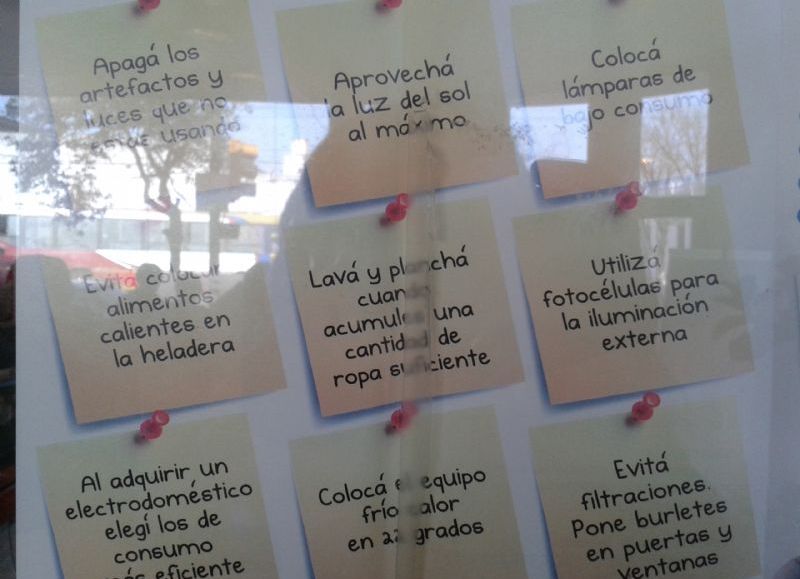 Apagá los
artefactos y
luces que no
estás usando
Aprovechá
la luz del sol
al máximo
Colocá
lámparas de
bajo consumo
Evitá colocar
alimentos
calientes en
la heladera
Lavá y planchá
cuando
acumules una
cantidad de
ropa suficiente
Utilizá
fotocélulas para
la iluminación
externa
Al adquirir un
electrodoméstico
elegí los de
consumo
más eficiente
Colocá el equipo
frío calor
en 22 grados
Evitá
filtraciones.
Pone burletes
en puertas y
ventanas